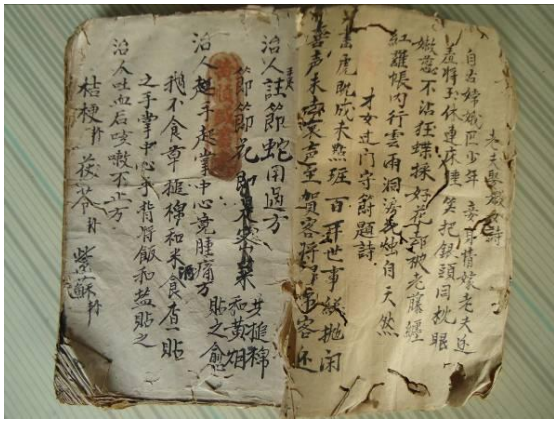 老夫娶嫩女詩
自古嫦娥匹少年 妾身情嫁老夫边
羞将玉体連床睡 笑把銀頭同枕眠
嫩蕊不沾狂蝶採 好花却被老藤纏
紅羅帳内行雲雨 洞房
自天然
才女过门守節題詩
虎既成未点班 百年世事
抛闲
喜声未
哀声至 賀客将
吊客还
治人註節蛇用過方
節節花即是
菜 共搥綿
和黄烟
貼之愈
治人起手起掌中心竟腫痛方
鵝不食草搥棉和米
食
一貼
之手掌中心手背脊飯和盐貼之
治人吐血后咳嗽不止方
桔梗
茯苓
紫蘇